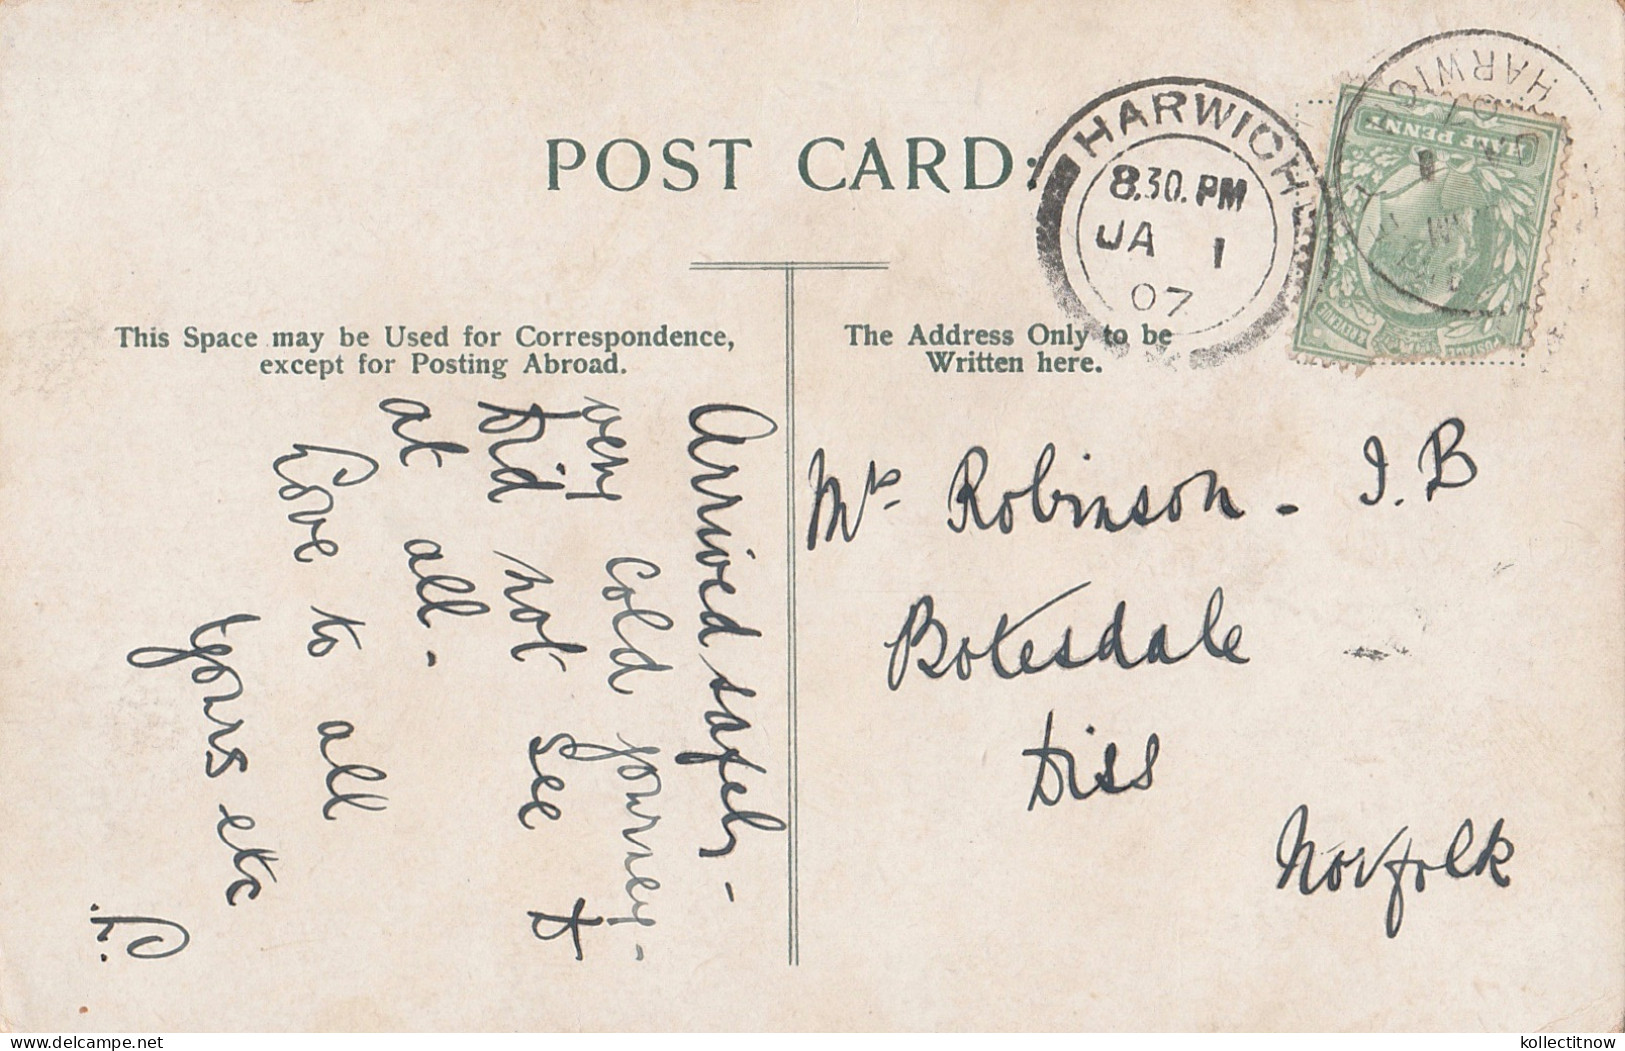 POST CARD.
HARWICH
8.30. PM
JA 1
07
HARWIC
07
HALF PENNY
This Space may be Used for Correspondence,
except for Posting Abroad.
The Address Only to be
Written here.
Arrived safely -
very cold journey -
Did not see D
at all.
Love to all
yours etc
Mrs Robinson - I.B
Botesdale
Diss
Norfolk
delcampe.net
kollectitnow